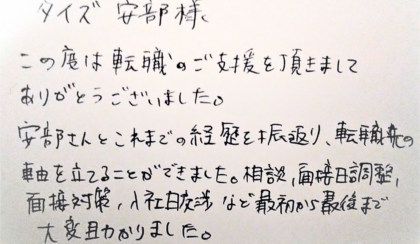 タイズ 安部様
この度は転職のご支援を頂きまして
ありがとうございました。
安部さんとこれまでの経歴を振返り、転職先の
軸を立てることができました。相談,面接日調整,
面接対策,入社日交渉など最初から最後まで
大変助かりました。